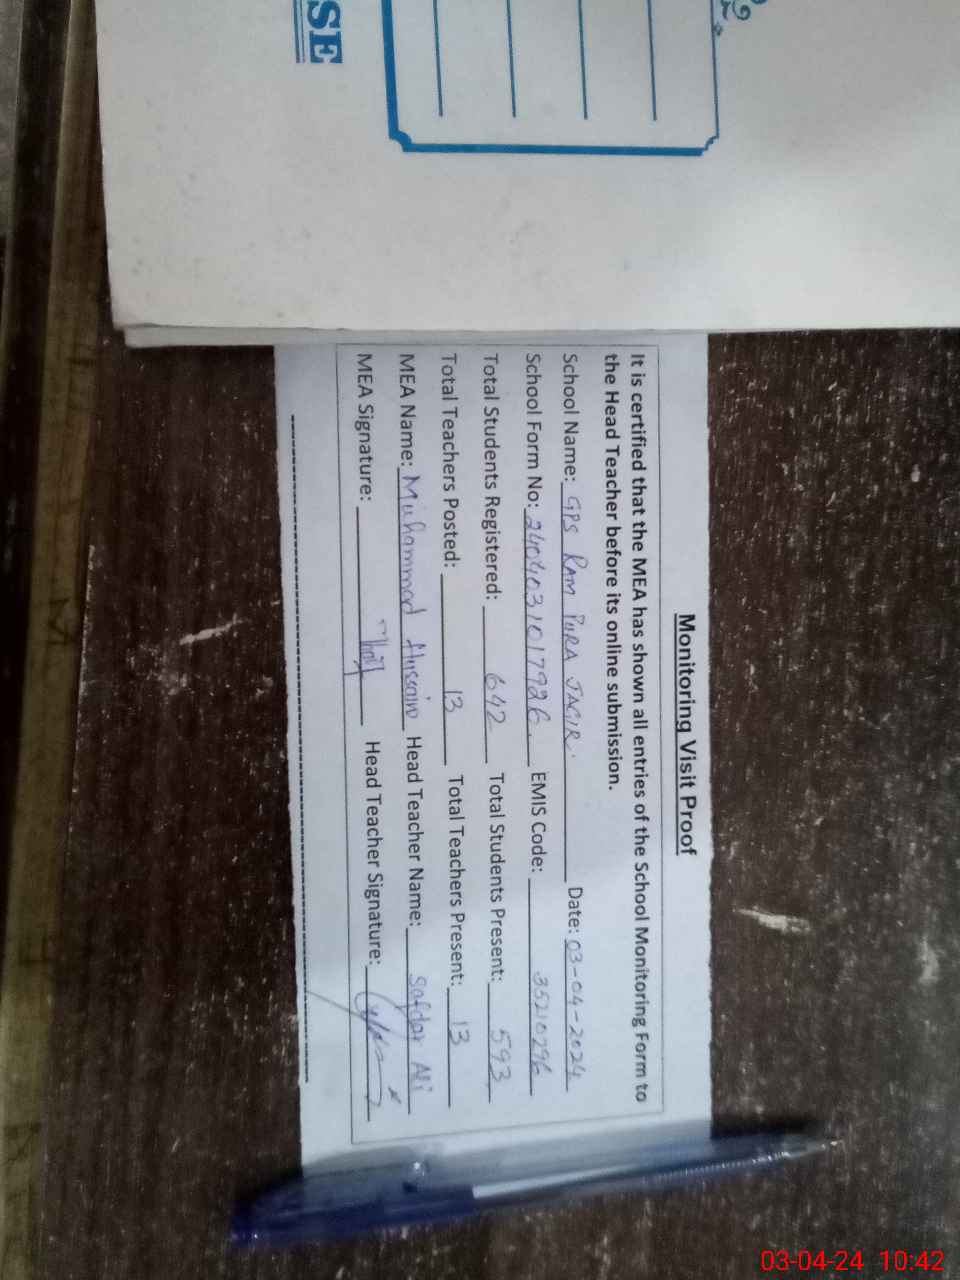 SE
Monitoring Visit Proof
It is certified that the MEA has shown all entries of the School Monitoring Form to
the Head Teacher before its online submission.
School Name: GPS RAM PURA JAGIR. Date: 03-04-2024
School Form No: EMIS Code: 35210296
Total Students Registered: 642 Total Students Present: 593
Total Teachers Posted: 13 Total Teachers Present: 13
MEA Name: Muhammad Hussain Head Teacher Name: Safdar Ali
MEA Signature: Head Teacher Signature:
03-04-24 10:42